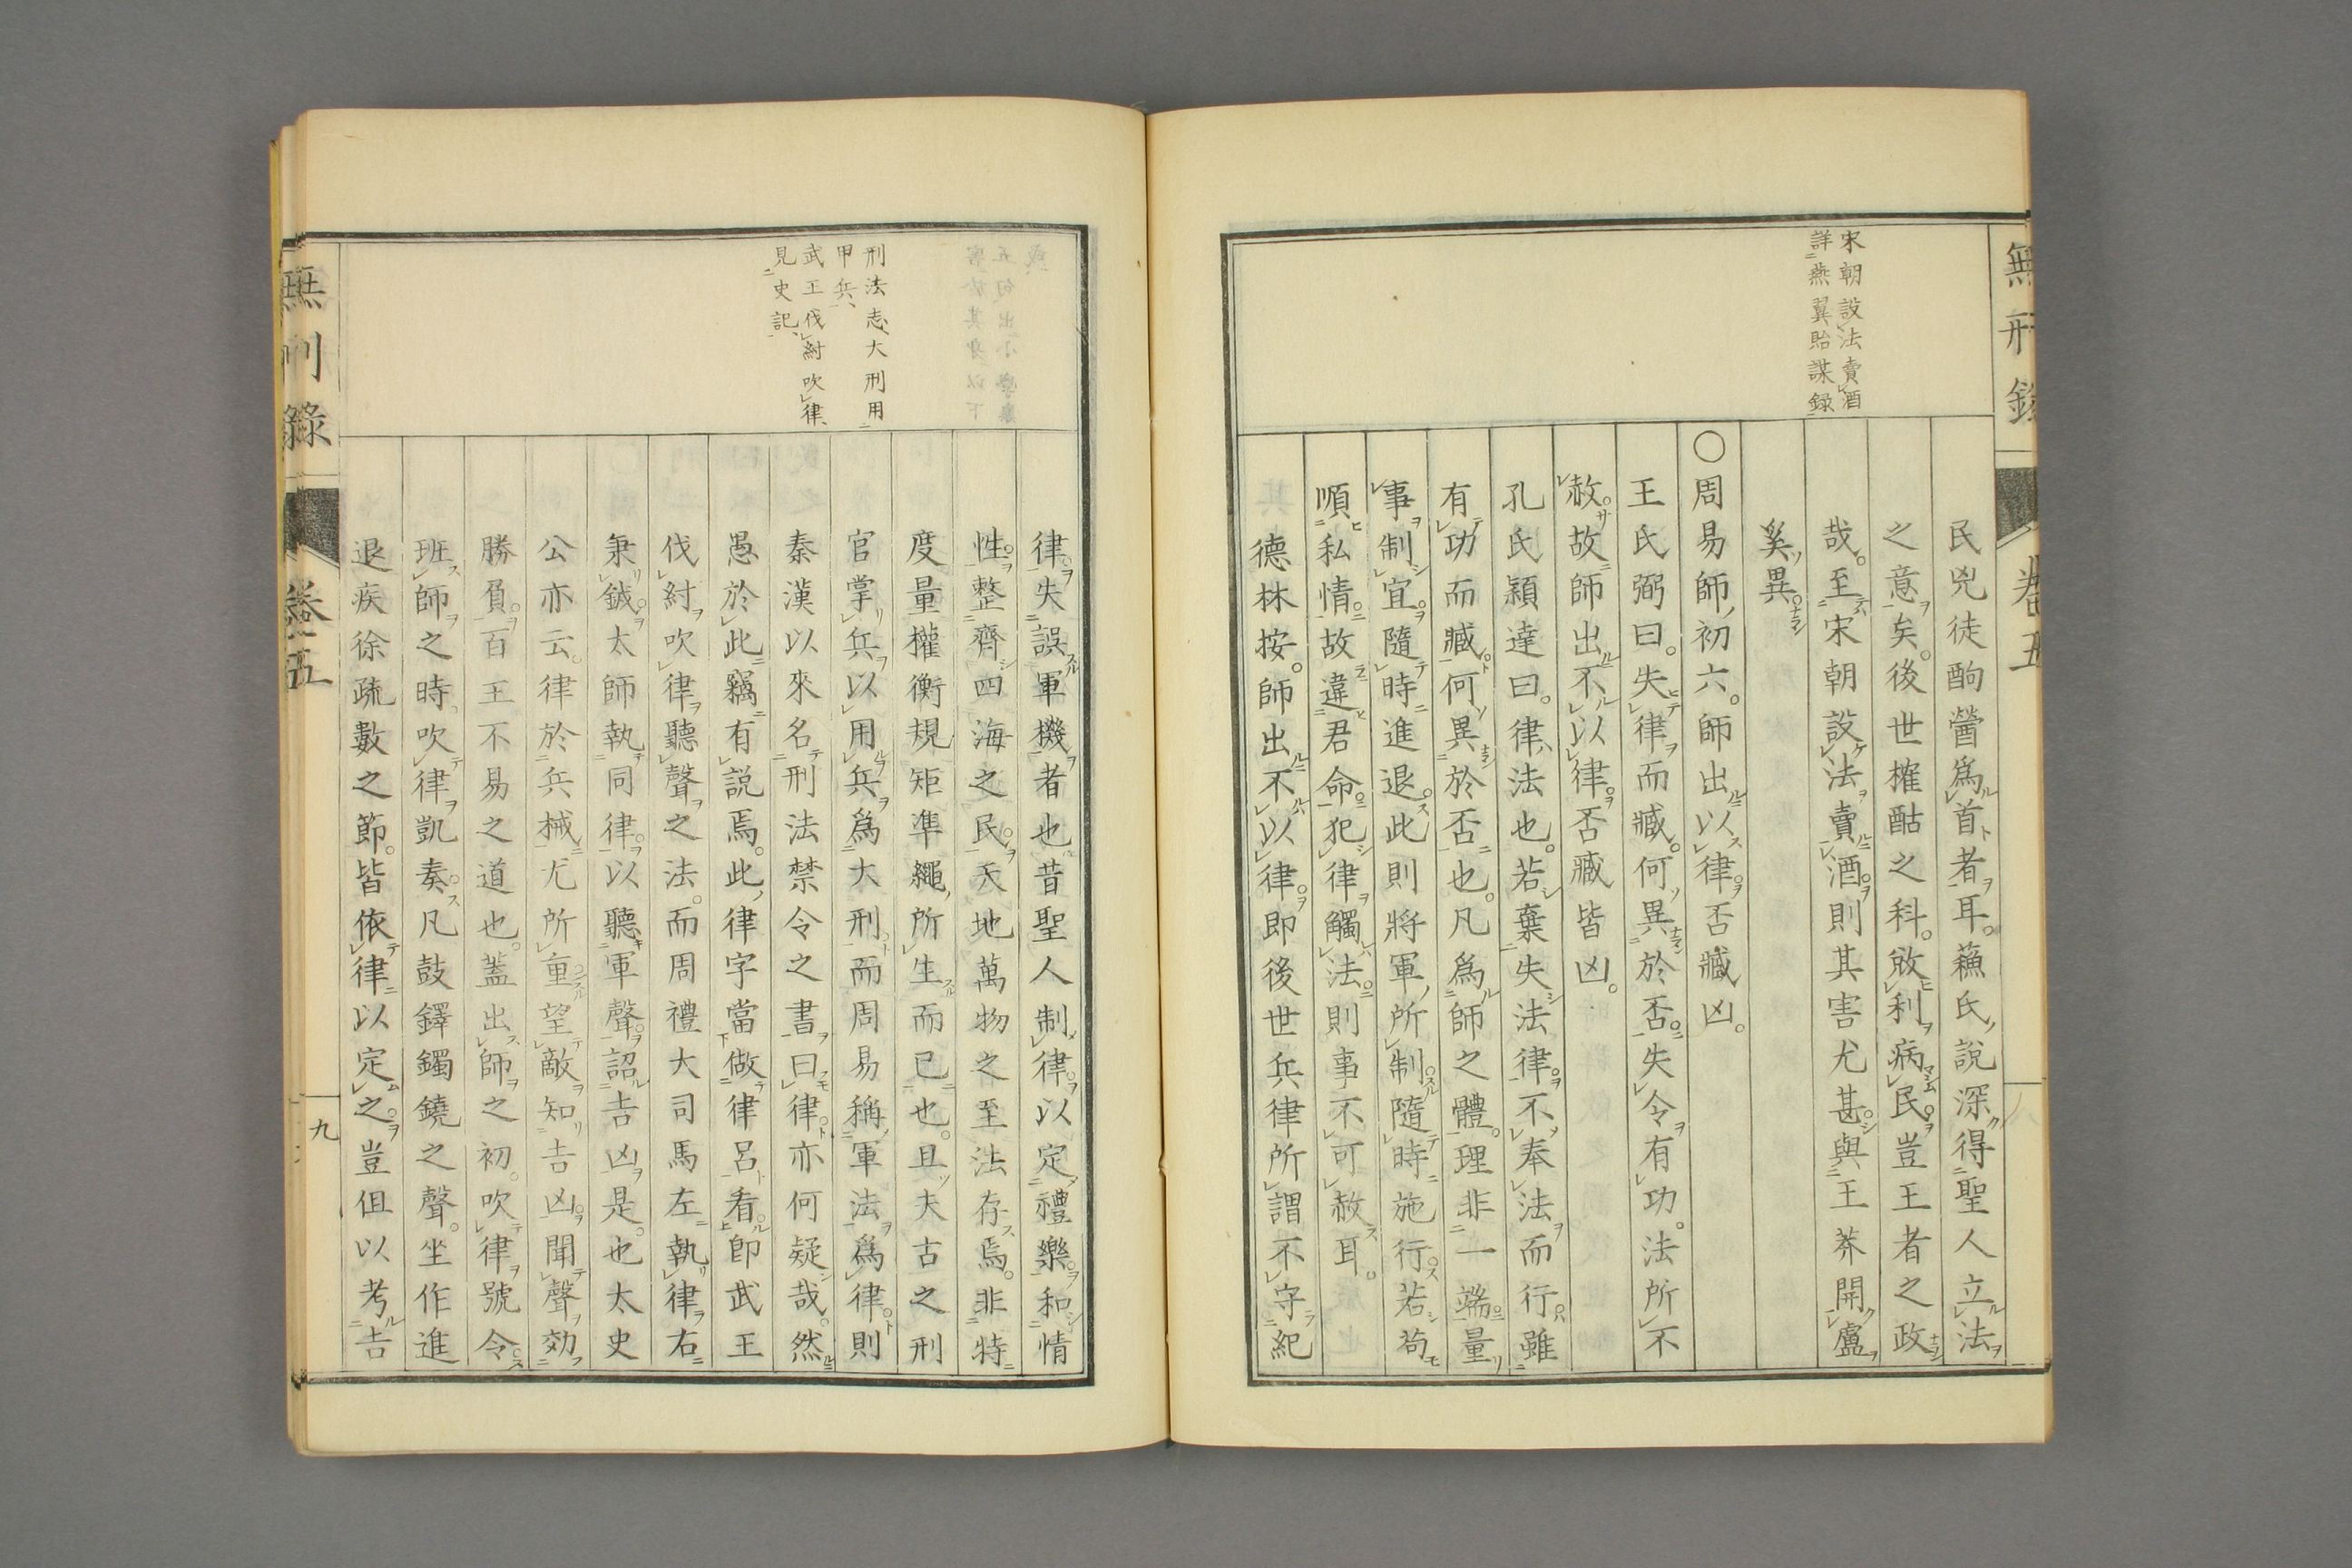 無刑錄
卷五
八
宋朝設法賣酒
詳燕翼貽謀録
民兇徒酌醟爲首者耳。蘓氏説深得聖人立法
之意矣。後世榷酤之科。敓利病民豈王者之政
哉。至宋朝設法賣酒則其害尤甚與王莽開盧
奚異
〇周易師初六。師出以律否臧凶。
王氏弼曰。失律而臧。何異於否。失令有功。法所不
赦。故師出不以律否臧皆凶。
孔氏穎達曰。律法也。若棄失法律不奉法而行雖
有功而臧何異於否也。凡爲師之體。理非一端量
事制宜隨時進退此則將軍所制隨時施行若苟
順私情故違君命犯律觸法則事不可赦耳。
德林按。師出不以律即後世兵律所謂不守紀
律失誤軍機者也昔聖人制律以定禮樂和情
性整齊四海之民天地萬物之至法存焉。非特
度量權衡規矩準繩所生而已也。且夫古之刑
官掌兵以用兵爲大刑而周易稱軍法爲律則
秦漢以來名刑法禁令之書曰律亦何疑哉。然
愚於此竊有説焉。此律字當做律呂看即武王
伐紂吹律聽聲之法。而周禮大司馬左執律右
秉鉞太師執同律以聽軍聲詔吉凶是也。太史
公亦云。律於兵械尤所重望敵知吉凶聞聲効
勝負。百王不易之道也。蓋出師之初。吹律號令
班師之時吹律凱奏。凡鼓鐸鐲鐃之聲。坐作進
退疾徐疏數之節。皆依律以定之豈但以考吉
刑法志大刑用
甲兵、
武王伐紂吹律、
見史記、
無刑錄
卷五
九